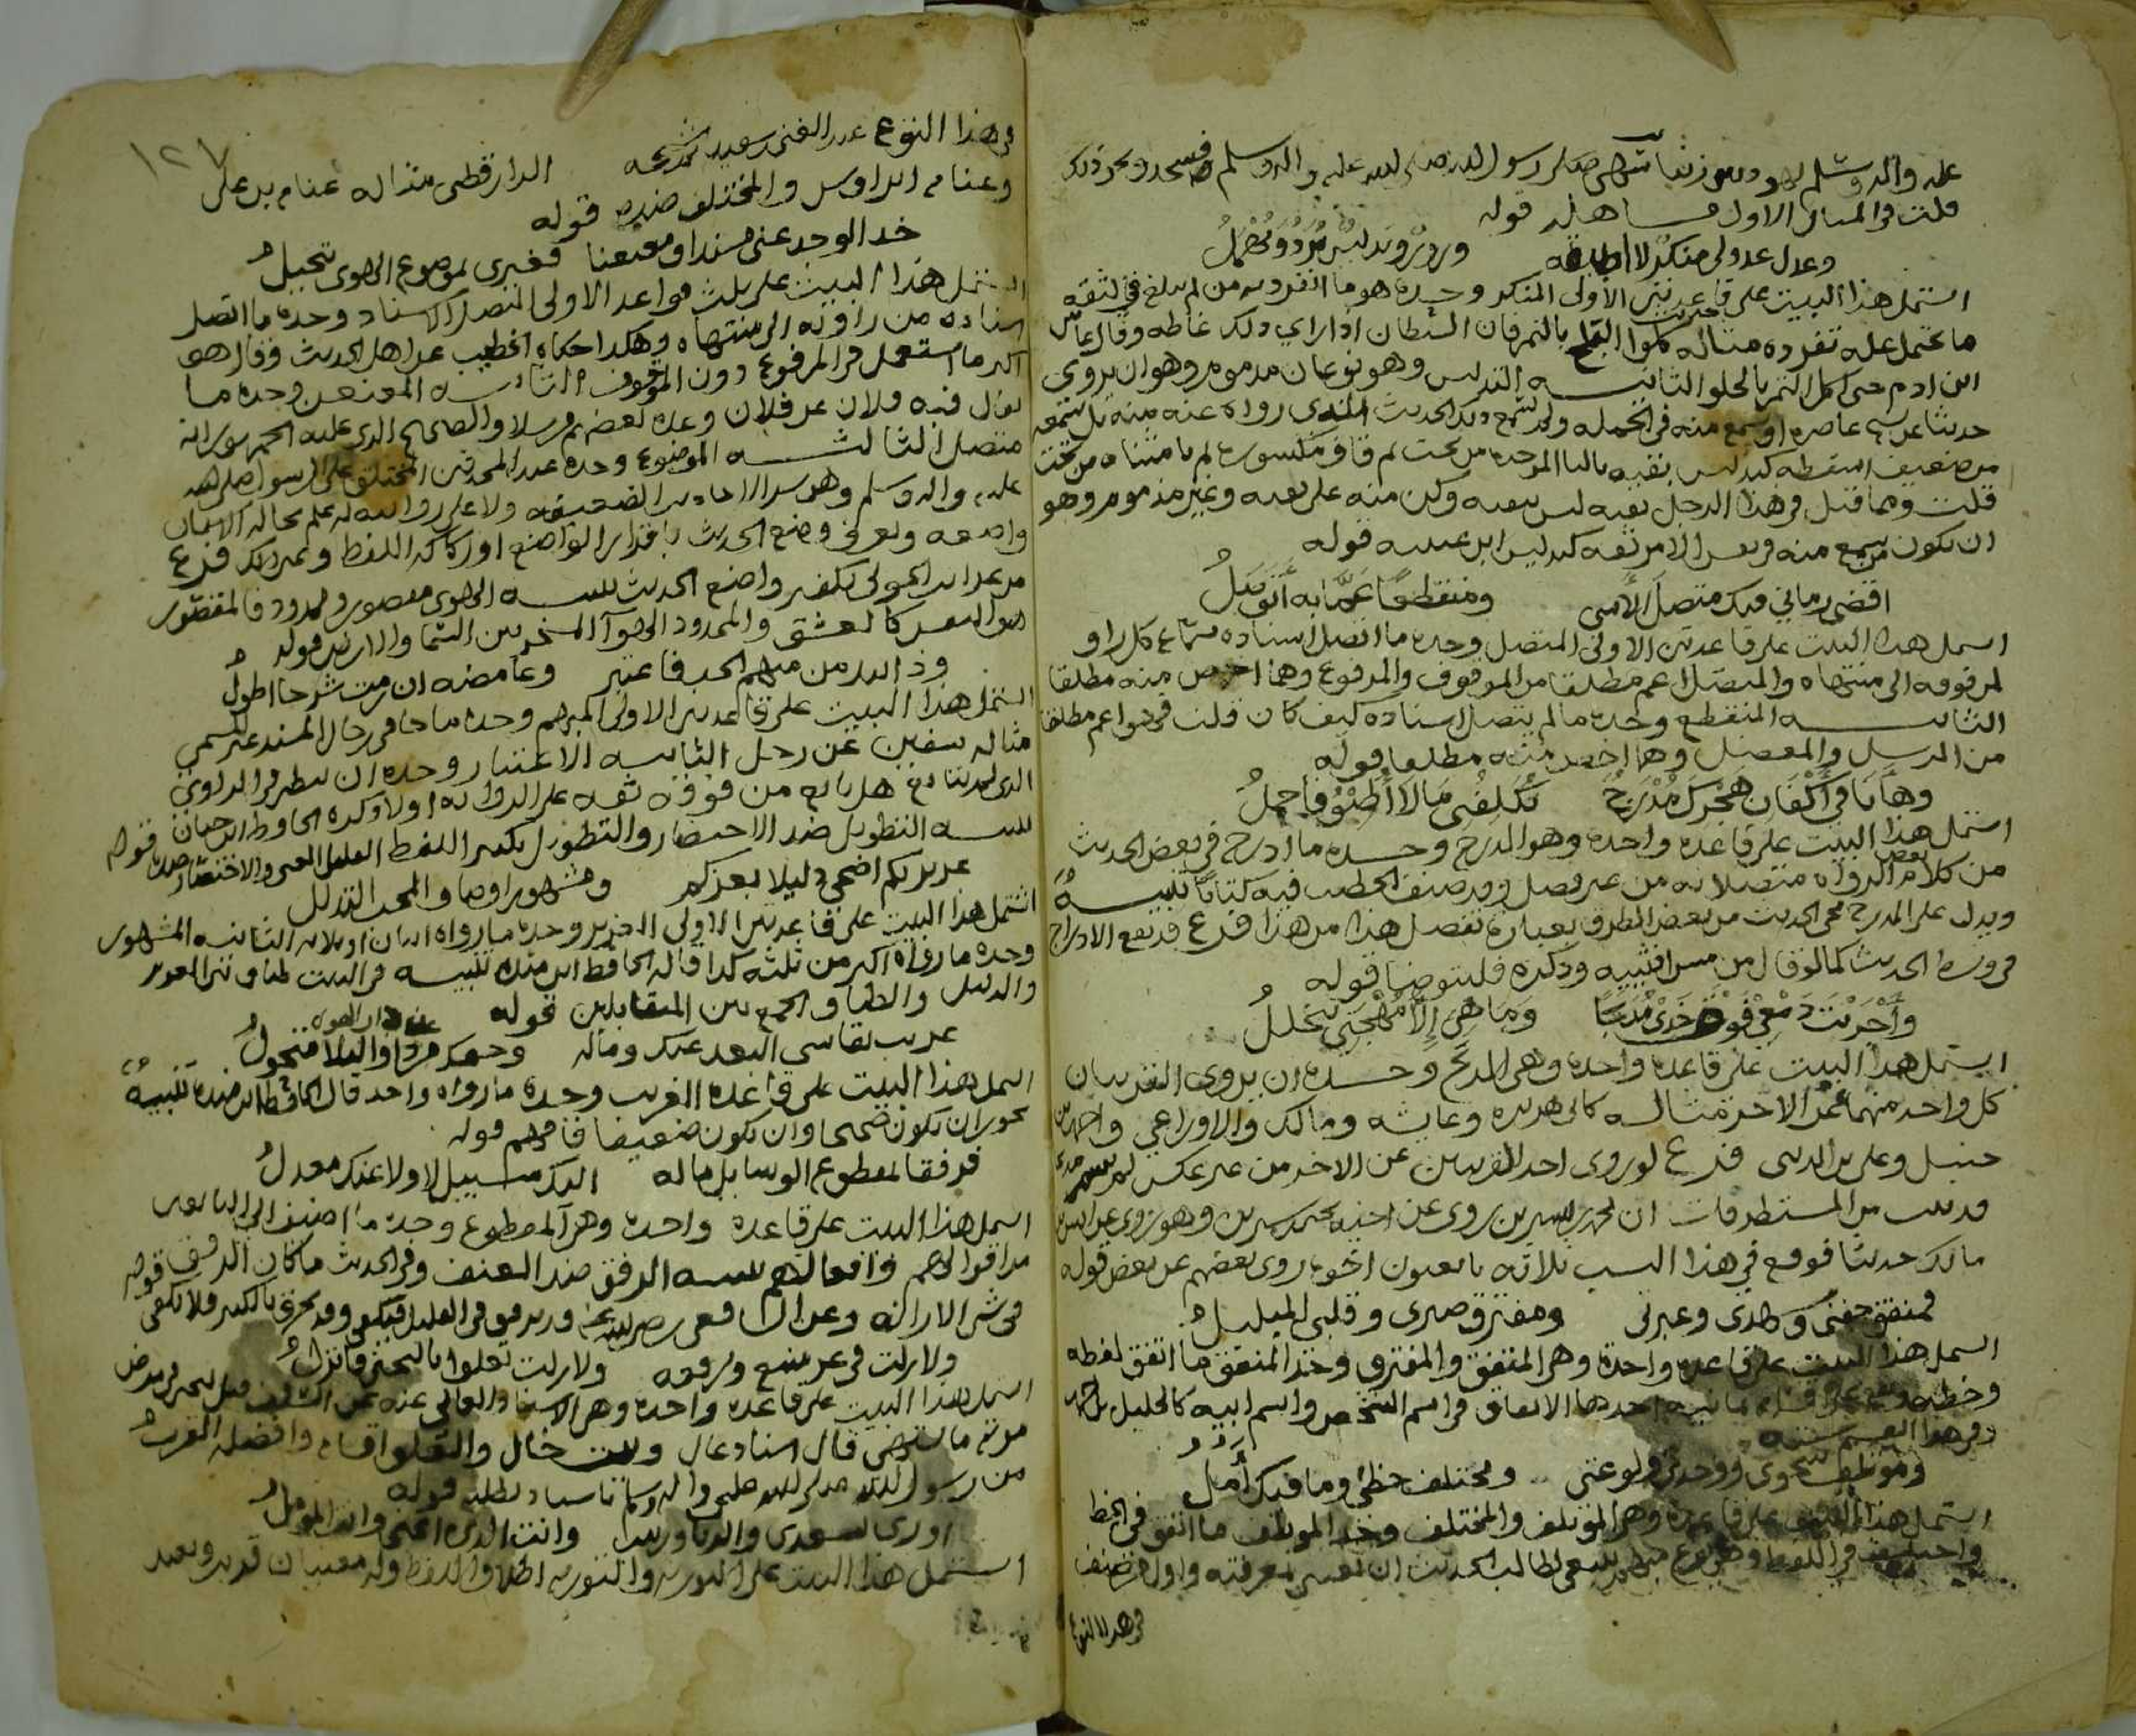 قلت في المثال الاول مساهله قوله
وعذل عذولي منكر لا اطيقه وزور وتدليس يرد ويهمل
اشتمل هذا البيت على قاعدتين الاولى المنكر وحده هو ما انفرد به من لم يبلغ في الثقه
ما يحتمل عليه تفرده مثاله حديث كلوا البلح بالتمر فان الشيطان اذا راى ذلك غاظه وقال عاش
ابن ادم حتى اكل التمر بالحلو الثانيه التدليس وهو نوعان مذموم وهو ان يروى
حديثا عن من عاصره او سمع منه في الجمله ولم يسمع ذلك الحديث الذي رواه عنه منه بل سمعه
من ضعيف اسقطه كتدليس بقيه بالبا الموحده من تحت ثم قاف مكسوره ثم يا مثناه من تحت
قلت ومما قيل في هذا الرجل بقيه ليس نقيه وكن منه على تقيه وغير مذموم وهو
ان يكون سمع منه وبعد الامر ثقه كتدليس ابن عيينه قوله
اقضي زماني فيك متصل الاسى ومنقطعا عما به اتوصل
اشتمل هذا البيت على قاعدتين الاولى المتصل وحده ما اتصل اسناده بسماع كل راو
لمن فوقه الى منتهاه والمتصل اعم مطلقا من الموقوف والمرفوع وهما اخص منه مطلقا
الثانيه المنقطع وحده ما لم يتصل اسناده كيف كان قلت فهو اعم مطلقا
من المرسل والمعضل وهما اخص منه مطلقا قوله
وها انا في اكفان هجرك مدرج تكلفني ما لا اطيق فاحمل
اشتمل هذا البيت على قاعده واحده وهو المدرج وحده ما ادرج في بعض الحديث
من كلام بعض الرواه متصلا به من غير فصل وقد صنف الخطيب فيه كتابا تنبيه
ويدل على المدرج مجي الحديث من بعض الطرق بعبارة تفصل هذا من هذا فرع قد يقع الادراج
في وسط الحديث كما لو قال من مس انثييه وذكره فليتوضا قوله
واجريت دمعي فوق خدي مدبجا وما هي الا مهجتي تتحلل
اشتمل هذا البيت على قاعده واحده وهي المدبج وحده ان يروي القرينان
كل واحد منهما عن الاخر مثاله كابي هريره وعايشه ومالك والاوزاعي واحمد بن
حنبل وعلي بن المديني فرع لو روى احد القرينين عن الاخر من غير عكس لم يسم مدبجا
من المستطرفات ان محمد بن سيرين روى عن اخيه يحيى بن سيرين وهو يروي عن انس بن
مالك حديثا فوقع في هذا السبب ثلاثه تابعيون اخوه روى بعضهم عن بعض قوله
فمتفق جفني وسهدي وعبرتي ومفترق صبري وقلبي المبلبل
اشتمل هذا البيت على قاعده واحدة وهي المتفق والمفترق وحد المتفق ما اتفق لفظه
وخطه احدها الاتفاق في اسم الشخص واسم ابيه كالخليل بن احمد
وفي هذا القسم سته
ومؤتلف شجوي ووجدي ولوعتي ومختلف حظي وما فيك آمل
اشتمل هذا البيت على قاعدة وهي المؤتلف والمختلف وحد المؤتلف ما اتفق في الخط
واختلف في اللفظ وهي نوع ينبغي لطالب الحديث ان يعتني بمعرفته واول من صنف
في هذا النوع
١٢٧
في هذا النوع عبد الغني بن سعيد ثم شيخه الدارقطني مثاله عثام بن علي
وغنام ابن اوس والمختلف ضده قوله
خذ الوجد عني مسندا ومعنعنا فغيري بموضوع الهوى يتحيل
اشتمل هذا البيت على ثلث قواعد الاولى المتصل الاسناد وحده ما اتصل
اسناده من راويه الى منتهاه وهكذا حكاه الخطيب عن اهل الحديث وقال هو
اكثر ما استعمل في المرفوع دون الموقوف الثانيه المعنعن وحده ما
يقال فيه فلان عن فلان وعده بعضهم مرسلا والصحيح الذي عليه الجمهور انه
متصل الثالثه الموضوع وحده عند المحدثين المختلق على الرسول صلى الله
عليه واله وسلم وهو شر الاحاديث الضعيفه ولا يحل روايته لمن علم بحاله الا مبينا
واضعه ويعرف وضع الحديث باقرار الواضع او ركاكه اللفظ وغير ذلك فرع
عن عبد الله الجويني يكفر واضع الحديث تنبيه الهوى مقصور وممدود فالمقصور
هوى النفس كالعشق والممدود الهوآ المسخر بين السما والارض قوله
وذي نبذ من مبهم الحب فاعتبر وغامضه ان رمت شرحا اطول
اشتمل هذا البيت على قاعدتين الاولى المبهم وحده ما جا في رجال المسند غير مسمى
مثاله سفين عن رجل الثانيه الاعتبار وحده ان ينظر في الراوي
تنبيه التطويل ضد الاختصار والتطويل تكثير اللفظ لقليل المعنى والاختصار ضده قوله
عزيز بكم اضحى ذليلا بعزكم ومشهور اوصاف المحب التذلل
اشتمل هذا البيت على قاعدتين الاولى العزيز وحده ما رواه اثنان او ثلاثه الثانيه المشهور
وحده ما رواه اكثر من ثلثه كذا قاله الحافظ ابن منده تنبيه في البيت طباق بين العزيز
والذليل والطباق الجمع بين المتقابلين قوله
غريب يقاسي البعد عنك وماله وحقك عن دار القلا متحول
اشتمل هذا البيت على قاعده الغريب وحدة ما رواه واحد قال الحافظ ابن منده تنبيه
يجوز ان يكون صحيحا وان يكون ضعيفا فافهم قوله
فرفقا لمقطوع الوسايل ماله اليك سبيل لا ولا عنك معدل
اشتمل هذا البيت على قاعدة واحده وهي المقطوع وحده ما اضيف الى التابعين
من اقوالهم وافعالهم تنبيه الرفق ضد العنف وفي الحديث ما كان الرفق
ولا زلت في عز منيع ورفعه ولا زلت تعلوا بالتجني فانزل
اشتمل هذا البيت على قاعده واحدة وهي الاسناد العالي
مرضه ما تشتهي قال اسناد عال وبيت خال والعلو اقسام وافضله القرب
من رسول الله صلى الله عليه واله وسلم باسناد نظيف قوله
اوري بسعدى والرباب وزينب وانت الذي اعني وانت المؤمل
اشتمل هذا البيت على التوريه والتوريه اطلاق لفظ وله معنيان قريب وبعيد